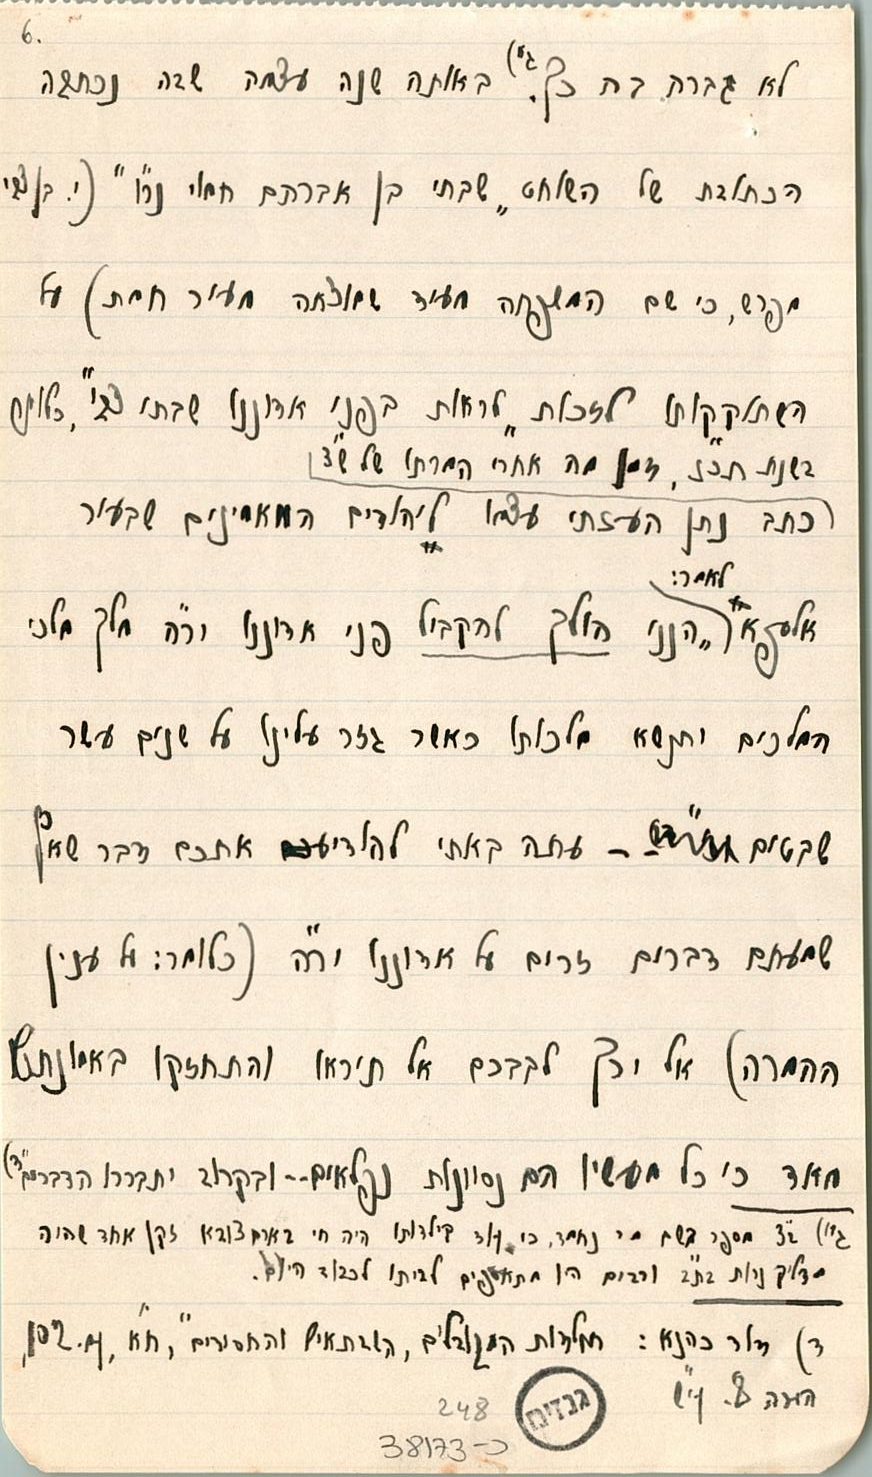 6.
לא גברת בת כץ. ג*) באותה שנה עצמה שבה נכתבה
הכתובת של השוחט „שבתי בן אברהם חמוי נר״ו" (י. בן צבי
מפרש, כי שם המשפחה מעיד שמוצאה מעיר חמת) על
השתוקקותו לזכות „לראות בפני אדוננו שבתי צבי", כלומר
בשנת תכ״ז, זמן מה אחרי המרתו של ש״צ
כתב נתן העזתי עצמו ליהודים המאמינים שבעיר
לאמר:
אלעפא „הנני הולך להקביל פני אדוננו יר״ה מלך מלכי
המלכים יתנשא מלכותו כאשר גזר עלינו על שנים עשר
שבטים – עתה באתי להודיע אתכם דבר שאף
שמעתם דברים זרים על אדוננו יר״ה (כלומר: על ענין
ההמרה) אל ירך לבבכם אל תיראו והתחזקו באמונתו
מאד כי כל מעשיו הם נסיונות נפלאים -- ובקרוב יתבררו הדברים" ד)
ג*) ב״צ מספר בשם מר נחמד, כי עוד בילדותו היה חי בארם צובא זקן אחד שהיה
מדליק נרות בת״ב ורבים היו מתאספים לביתו לכבוד היום.
ד) דוד כהנא: תולדות המקובלים, השבתאים והחסידים", ח״א,
הערה
גנזים
248
כ-38173